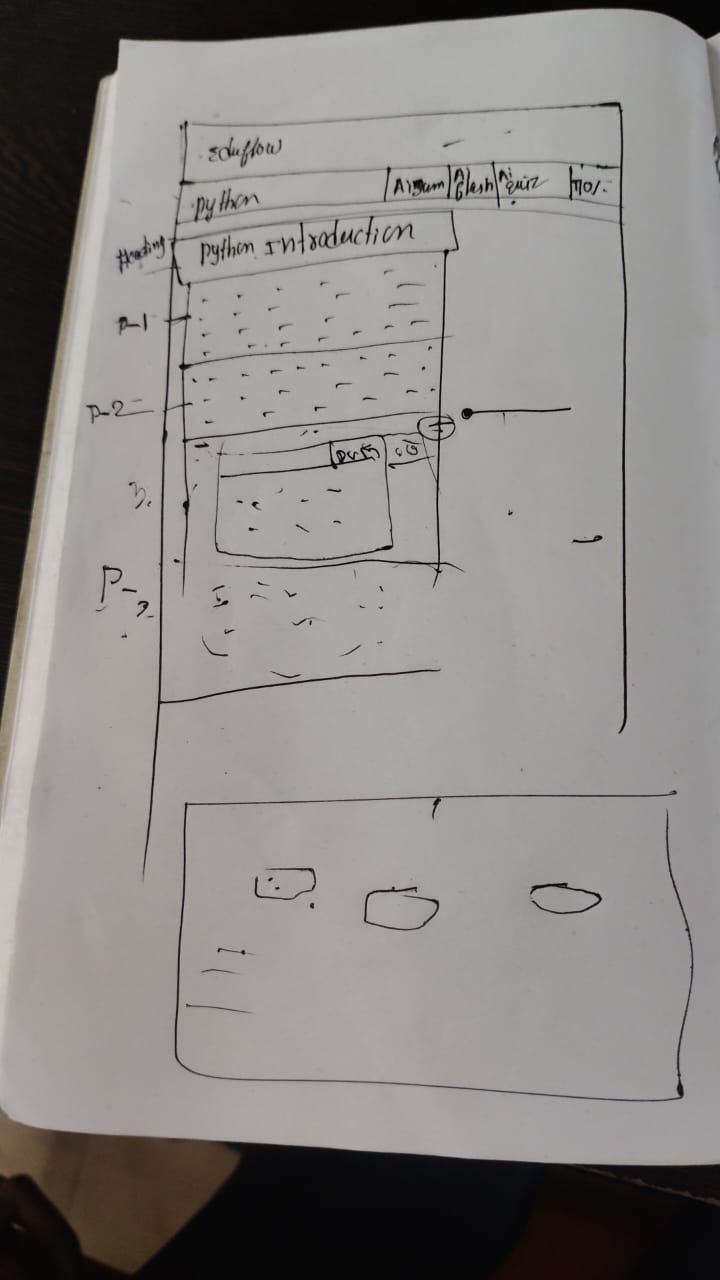 Eduflow
python
Ai sum
Ai flash
Ai quiz
70%
Heading
python Introduction
P-1
P-2
3.
P-